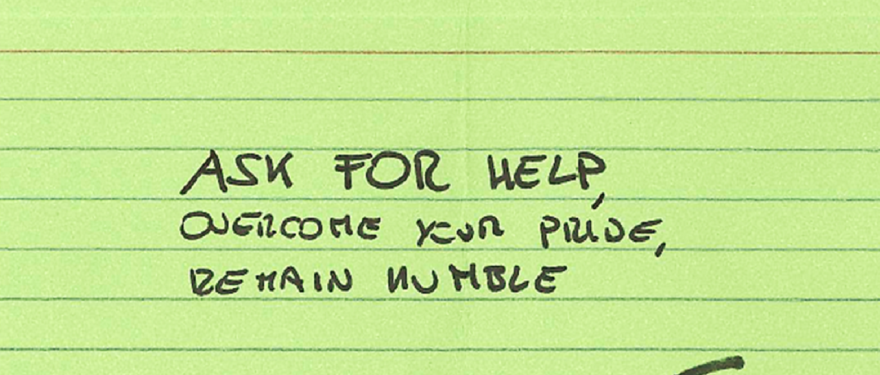 ASK FOR HELP,
OVERCOME YOUR PRIDE,
REMAIN HUMBLE